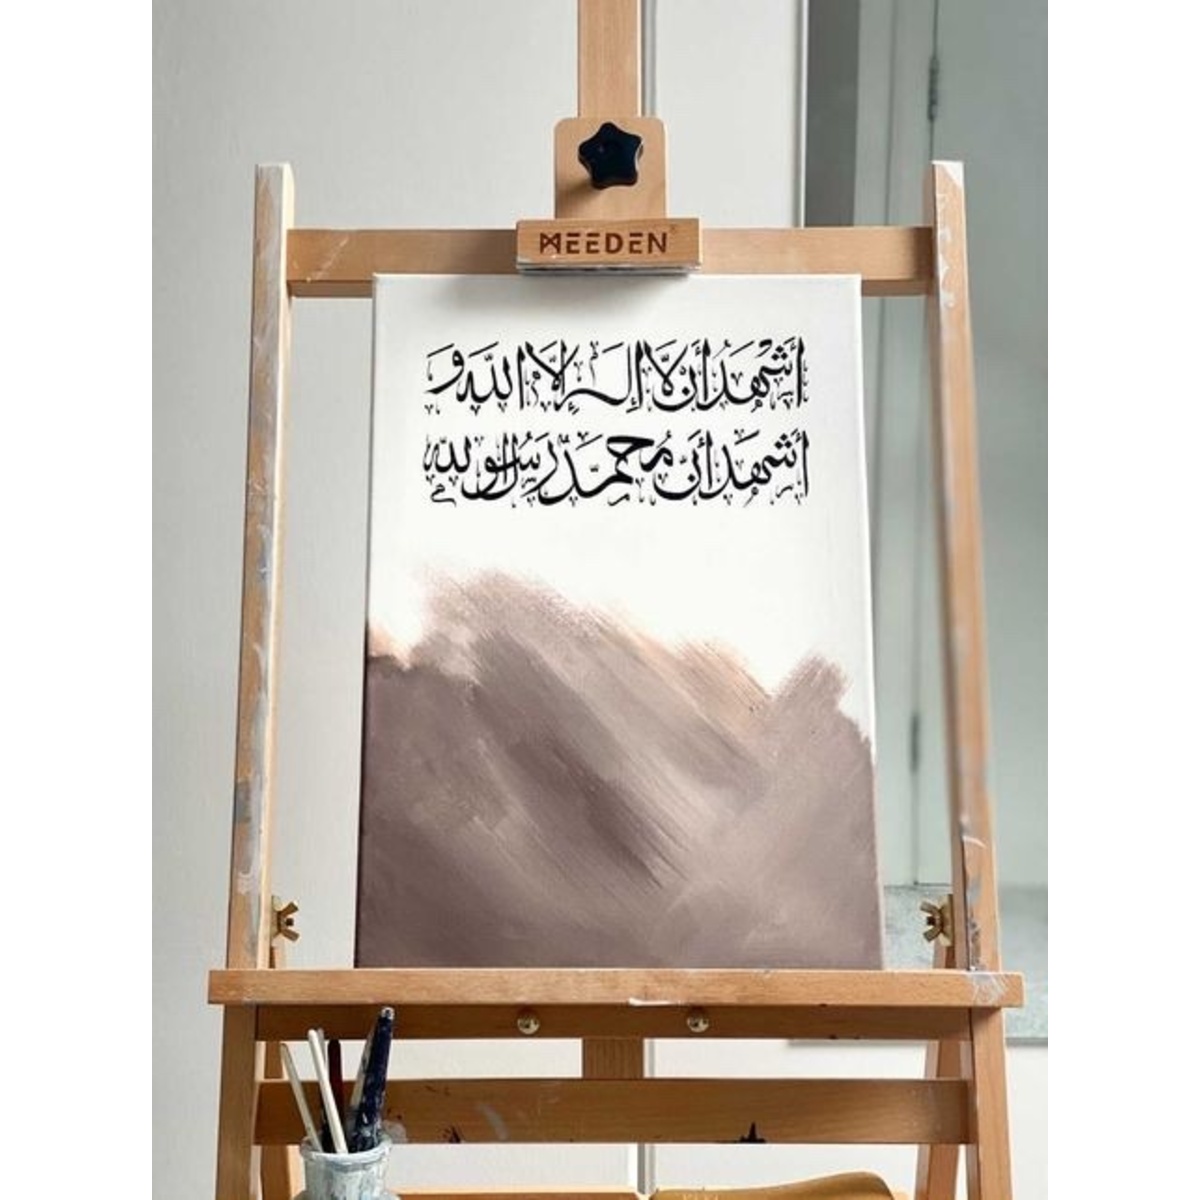 MEEDEN
أَشْهَدُ أَن لَّا إِلَـٰهَ إِلَّا اللَّه و
أَشهَدُ أَنَّ مُحَمَّدَ رَسُولُ اللّه